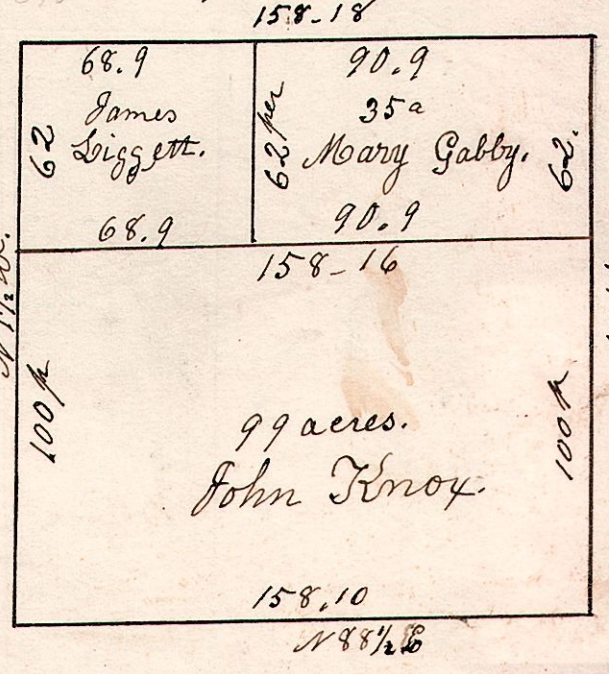 158-18
68.9
James
Liggett.
68.9
62
62 per
90.9
35 a
Mary Gabby.
90.9
62.
158-16
N 1½ W.
100 p
99 acres.
John Knox.
100 p
158.10
N 88½ E